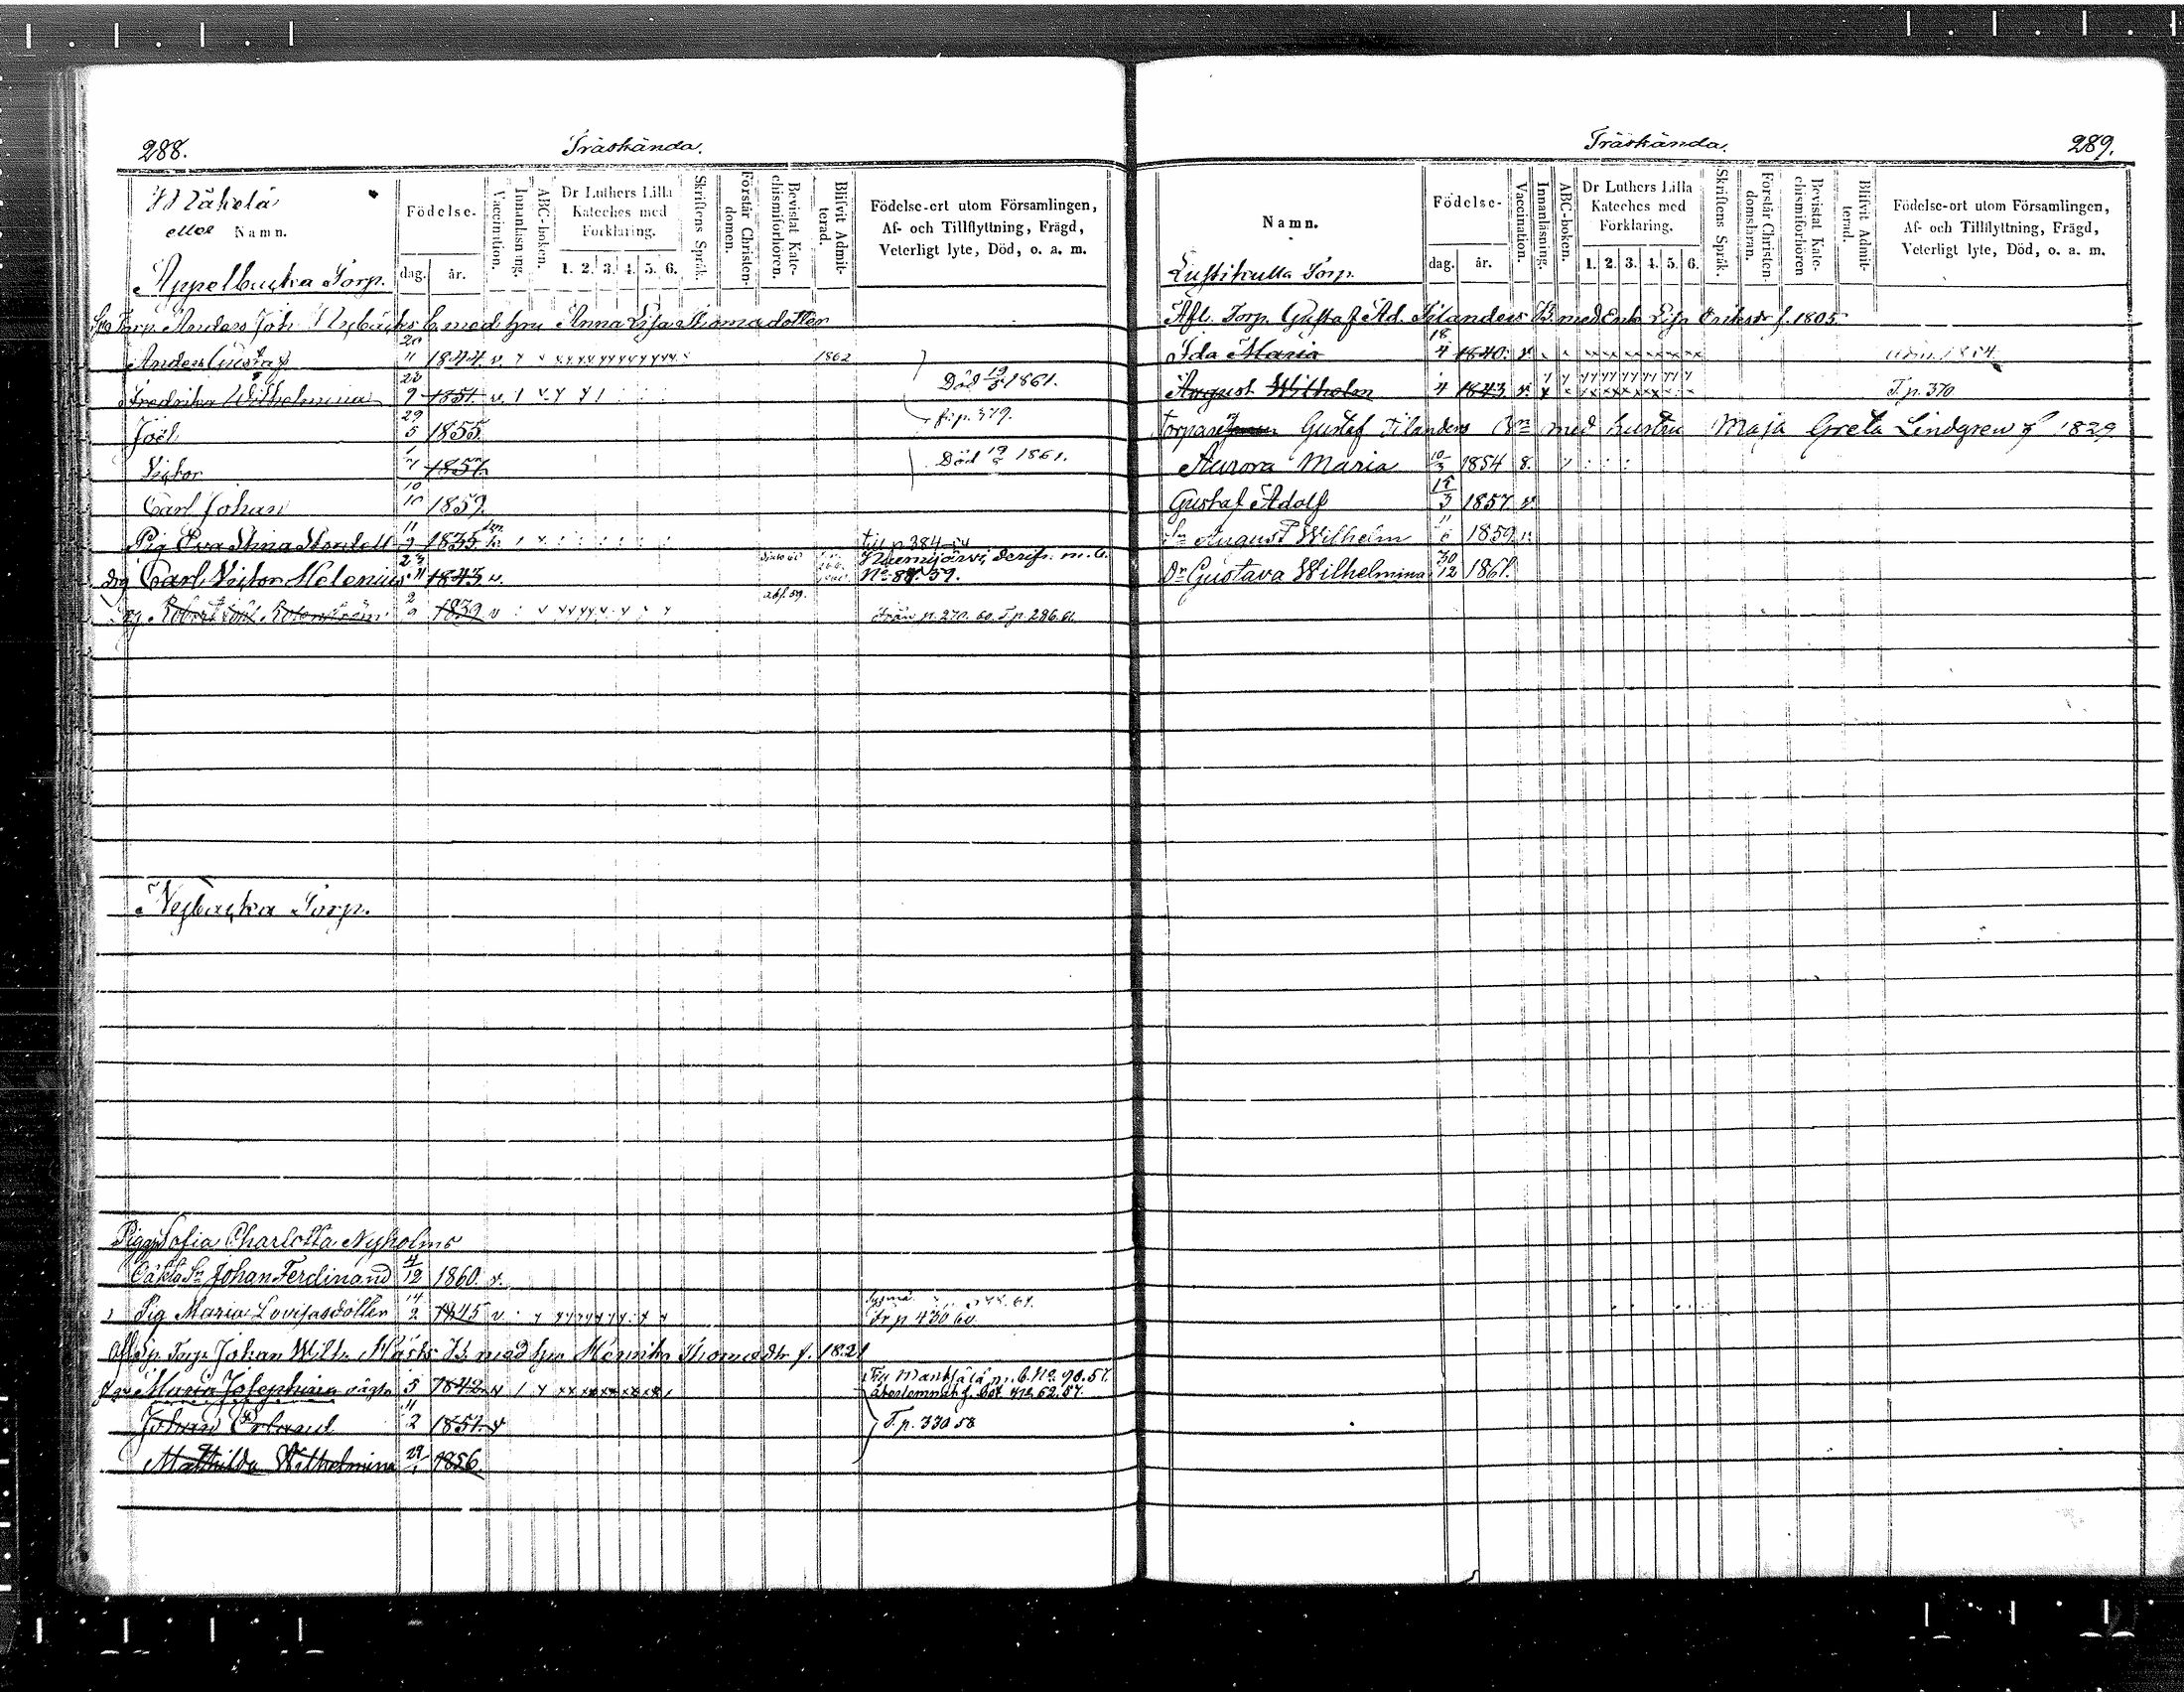 288.
Träskända.
eller Namn.
Appelbacka Torp.
Födelse.
dag. år.
Vaccination.
Innanläsning.
ABC-boken.
Dr Luthers Lilla
Kateches med
Förklaring.
1. 2. 3. 4. 5. 6.
Skriftens Språk.
Förstår Christen-
domen.
Bevistat Kate-
chismiförhören.
Blifvit Admit-
terad.
Födelse-ort utom Församlingen,
Af- och Tillflyttning, Frägd,
Veterligt lyte, Död, o. a. m.
Torp. Anders Joh. Nybäcks b. med hru Anna Lisa Thomadotter
Anders Gustaf 20/11 1844. v. 1862
Fredrika Wilhelmina 9 1851 v. Död 19/5 1861.
Joel 29/5 1855. fr. p. 379.
Victor 1/7 1857 Död 19/5 1861.
Carl Johan 10/10 1859.
Pig Eva Stina 11/9 1835 till p 384
drg Carl Victor Helenius 23/11 1843 v. m. b.
No 88. 59.
abs. 59.
2/9 1839 v Från p. 270. 60. T. p. 286. 61.
Nybacka Torp.
Pigan Sofia Charlotta Nyholms
Oäkta Sn Johan Ferdinand 4/12 1860. v.
Pig Maria Lovisasdotter 14/2 1845 v. Fr p 430 60
Torp. Johan Wilh. B. med hru Henrika Thomasdtr f. 1821
Maria Josephina oägta 5 1842 v Till Mantsälä m. b. No. 90. 57.
återlemnat f. bet. No. 62. 57.
Johan Erland 11/2 1851 v T. p. 330 58
Mathilda Wilhelmina 29/1 1856.
Träskända.
289.
Namn.
Lustikulla Torp.
Födelse-
dag. år.
Vaccination.
Innanläsning.
ABC-boken.
Dr Luthers Lilla
Kateches med
Förklaring.
1. 2. 3. 4. 5. 6.
Skriftens Språk.
Förstår Christen-
domsläran.
Bevistat Kate-
chismiförhören
Blifvit Admit-
terad.
Födelse-ort utom Församlingen,
Af- och Tillflyttning, Frägd,
Veterligt lyte, Död, o. a. m.
Afl. Torp. Gustaf Ad. Tilanders B. med Enk. Lisa Eriksdr f. 1805.
Ida Maria 18/4 1840. v.
August Wilhelm 4 1843 v. T. p. 370
Torparen Gustaf Tilanders Brn med hustru Maja Greta Lindgren f 1829
Aurora Maria 10/3 1854 v.
Gustaf Adolf 15/3 1857 v.
Sn August Wilhelm 11/6 1859 v.
Dr Gustava Wilhelmina 30/12 1861.